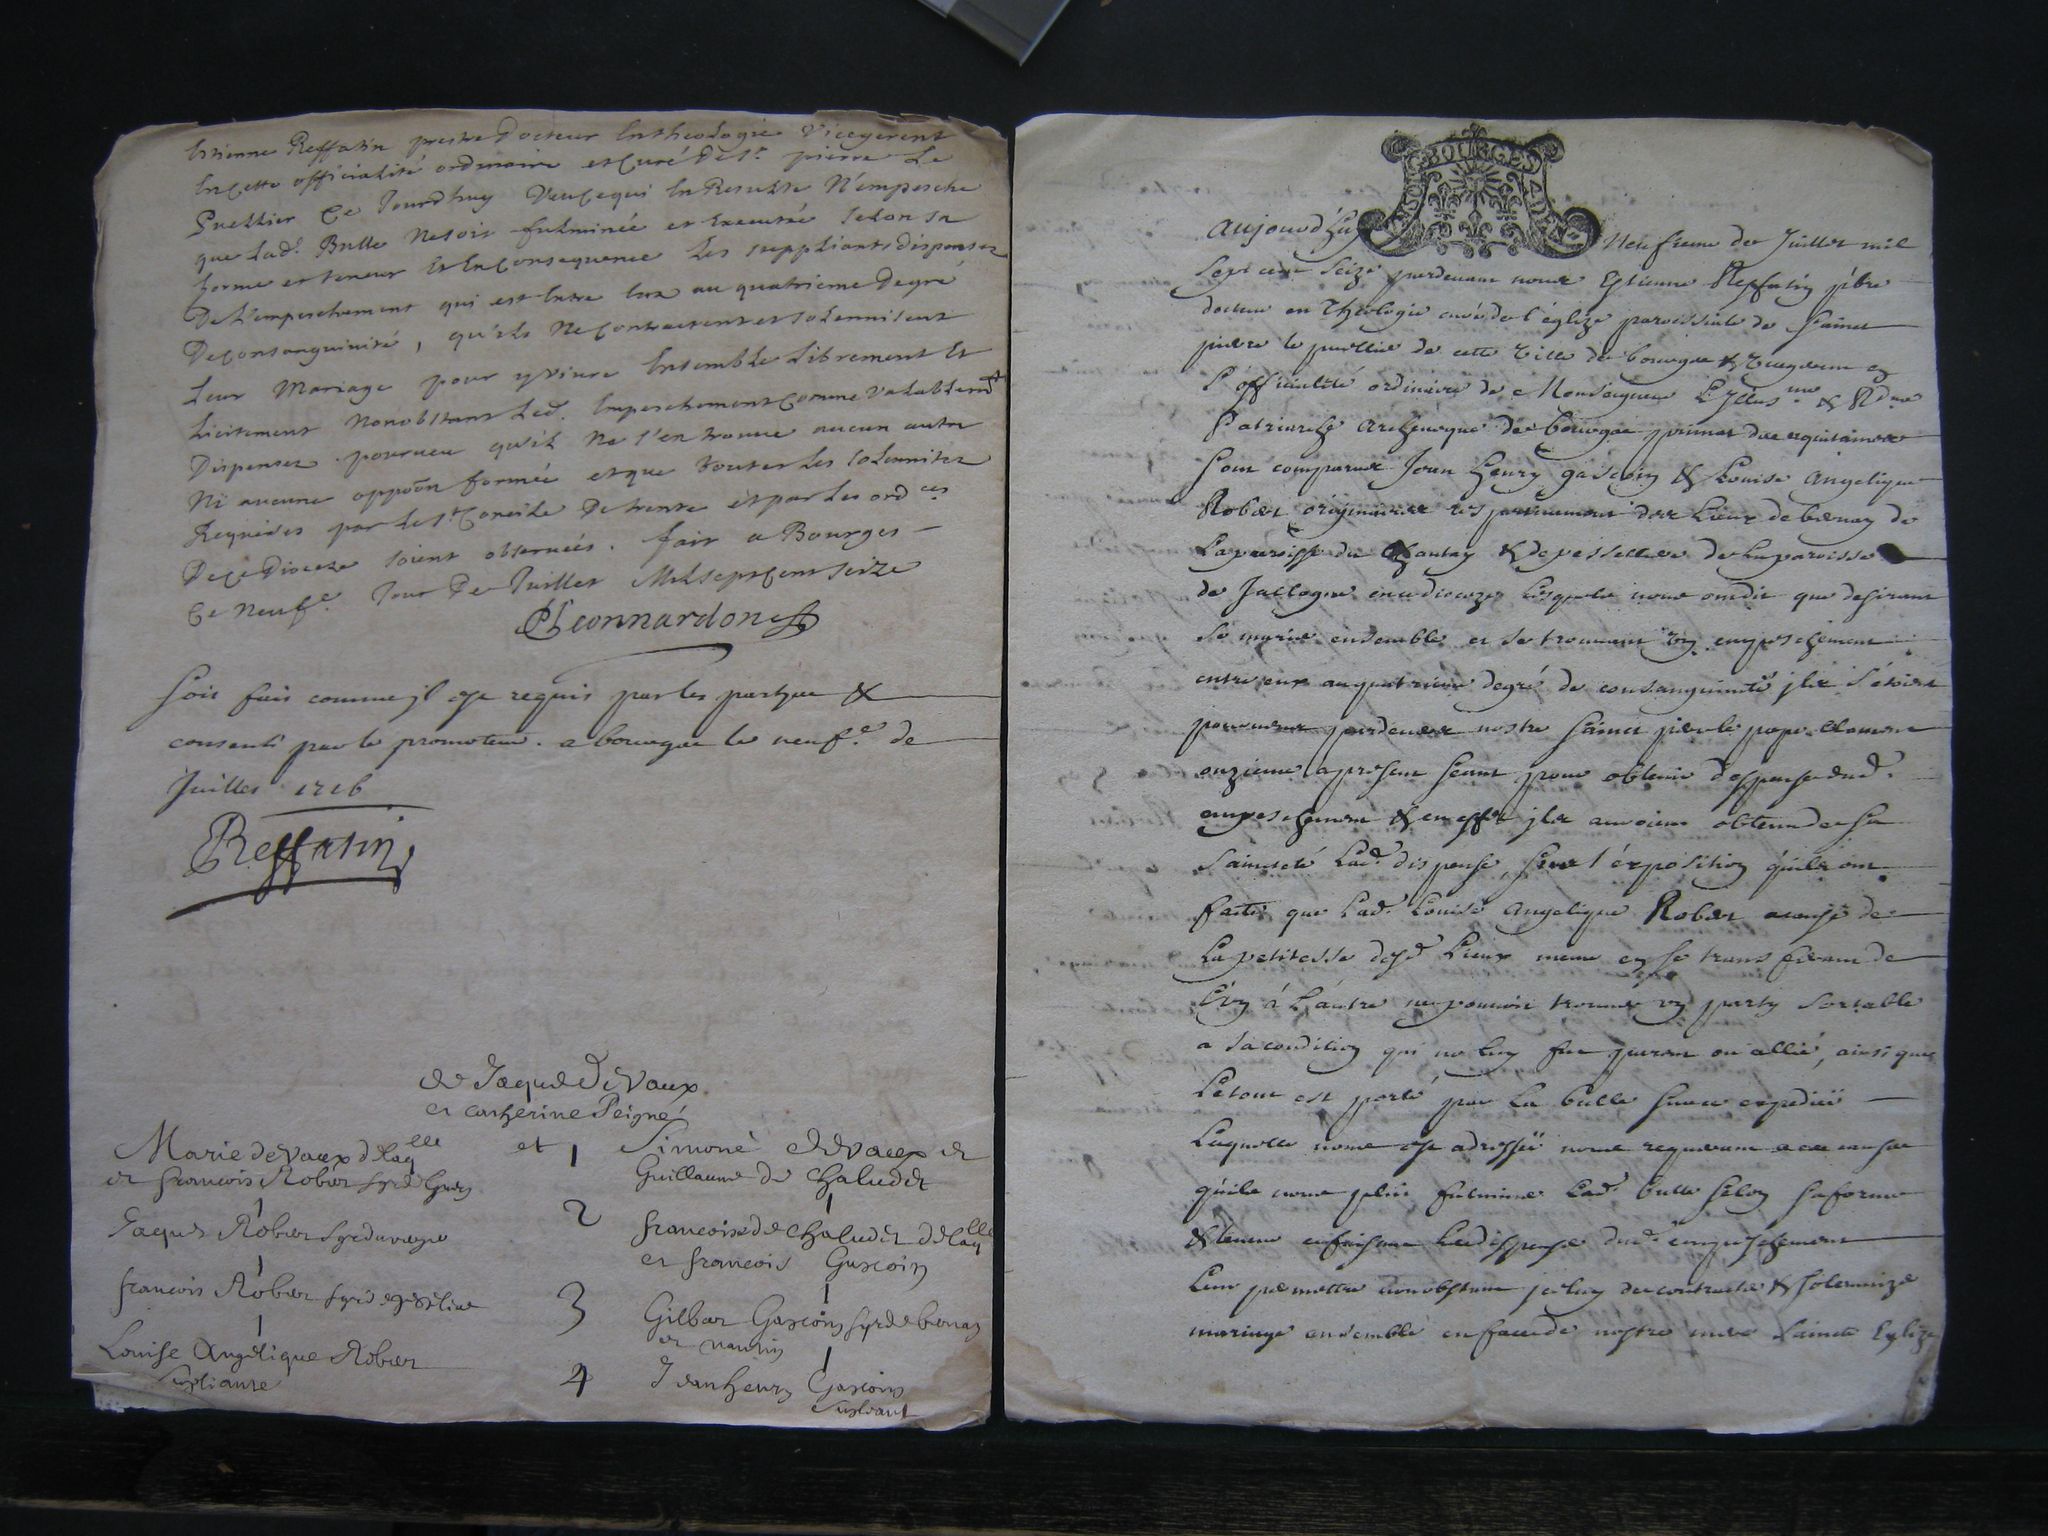 Estienne Reffatin prestre Docteur En theologie Vicegerent
En Cette officialité ordinaire et Curé De St. pierre Le
Puellier Ce Jourdhuy Veu Ce qui En Resulte N'empesche
que Lad. Bulle Ne soit fulminée et Executée selon sa
forme et teneur Et En Consequence Les suppliants dispensez
De L'empeschement qui est Entre Eux au quatrieme Degré
De Consanguinité, qu'ils Ne Contractent et solennisent
Leur Mariage pour y vivre Ensemble Librement Et
Licitement Nonobstant Led. Empeschement Comme Valablemt
Dispensez. pourveu qu'il Ne s'en trouve aucun autre
Ni aucune oppoõn formée et que toutes Les solennitez
Requises par Le St Concile De trente et par Les ordces
De Ce Dioceze soient observées. fait a Bourges
Ce Neufe. Jour De Juillet Mil sept Cent seize
Leonnardon
Soit fait comme il est requis par les parties &
consenti par le promoteur. a bourges le neufe. de
Juillet 1716
Reffatin
de Jaques de Vaux
et catherine Peigné
Marie de Vaux dlaqlle
et francois Rober
Jaques Rober
francois Rober
Louise Angelique Rober
supliante
et 1 Simone de Vaux et
Guillaume de Chaludet
2 francoise de Chaludet dlaqlle
et francois Gascoin
3 Gilber Gascoin syr de bernay
et nantin
4 Jean henry Gascoin
supliant
BOURGES
aujourd'huy Neufieme de Juillet mil
Sept cent Seize pardevant nous Estienne Reffatin pbre
docteur en Theologie curé de l'eglize parroissiale de Sainct
pierre le puellier de cette Ville de bourges & vicegerent en
L'officialité ordinaire de Monseigneur L'Illusme. & Rdme
Patriarche Archeveque de bourges primat des aquitaines
Sont comparus Jean henry gascoin & Louise Angelique
Rober originaires respectivement des Lieux de bernay de
La parroisse de & de de la paroisse
de Jalogne en ce dioceze Lesquels nous ont dit que desirant
se marier ensemble et se trouvant un empeschement
entre eux au quatrieme degré de consanguinité ils s'étoient
pourveus pardevers nostre Sainct pere le pape Clement
onzieme a present Seant pour obtenir dispense dud.
empeschement & en effet ils auroient obtenu de Sa
Saincteté Lad. dispense, Sur l'exposition qu'ils ont
faite que Lad. Louise Angelique Rober a cause de
La petitesse desd. Lieux meme en se transferant de
L'un à L'autre ne pouvoit trouver un party Sortable
a sa condition qui ne luy fut parent ou allié, ainsi que
Le tout est porté par La bulle Sur ce expediée
Laquelle nous est adressée nous requerant a ces causes
qu'il nous plaise fulminer Lad. bulle Selon Sa forme
& teneur en faisant Les dispenser dud. empeschement
Leur permettre nonobstant iceluy de contracter & Solemnizer
mariage ensemble en face de nostre mere Saincte Eglize